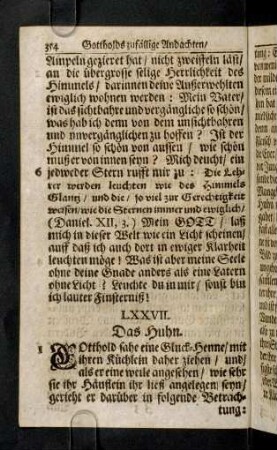 314 Gottholds zufällige Andachten/
Ampeln gezieret hat / nicht zweiffeln läst/
an die übergrosse selige Herrlichkeit des
Himmels / darinnen deine Außerwehlten
ewiglich wohnen werden : Mein Vater/
ist das sichtbahre und vergängliche so schön/
was hab ich denn von dem unsichtbahren
und unvergänglichen zu hoffen ? Ist der
Himmel so schön von aussen / wie schön
muß er von innen seyn ? Mich deucht/ ein
6 jedweder Stern rufft mir zu : Die Leh-
rer werden leuchten wie des Himmels
Glantz / und die / so viel zur Gerechtigkeit
weisen/ wie die Sternen immer und ewiglich!
(Daniel. XII, 3.) Mein GOTT / laß
mich in dieser Welt wie ein Licht scheinen/
auff daß ich auch dort in ewiger Klarheit
leuchten möge ! Was ist aber meine Seele
ohne deine Gnade anders als eine Latern
ohne Licht ? Leuchte du in mir / sonst bin
ich lauter Finsterniß!
LXXVII.
Das Huhn.
1 GOtthold sahe eine Gluck-Henne/ mit
ihren Küchlein daher ziehen / und/
als er eine weile angesehen / wie sehr
sie ihr Häuflein ihr ließ angelegen seyn/
gerieht er darüber in folgende Betrach-
tung: